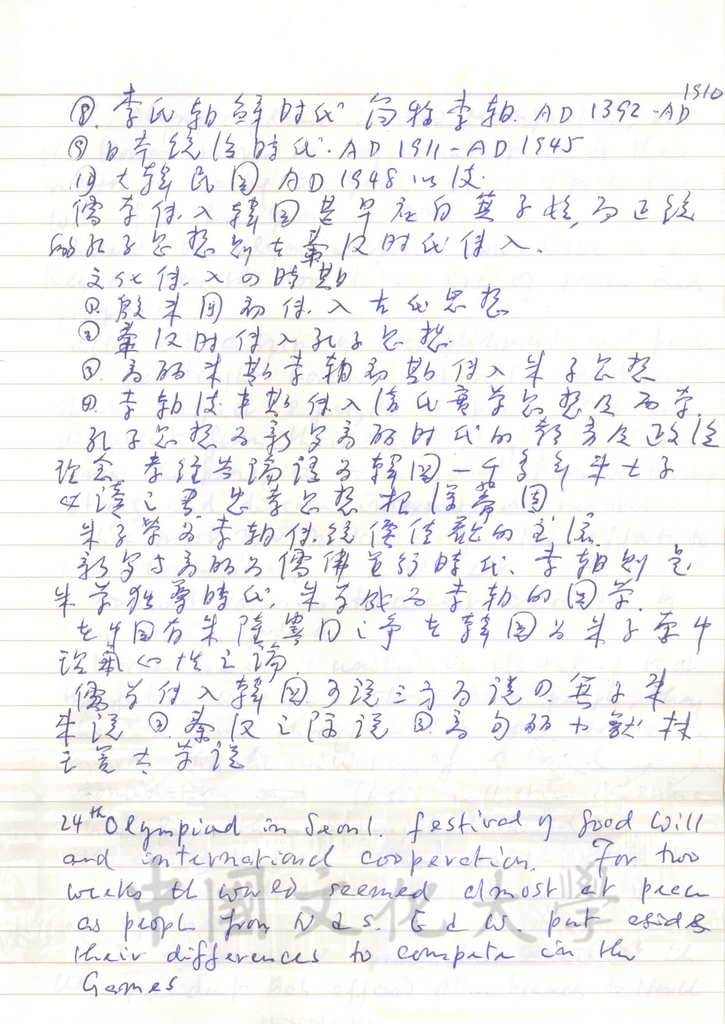 ⑧. 李氏朝鮮时代 简称李朝. AD 1392-AD 1910
⑨ 日本统治時代. AD 1911-AD 1945
⑩ 大韓民国 AD 1948 以後.
儒学传入韓国甚早应自箕子始,而正統
的孔子思想则在秦汉时代传入.
文化传入の時期
①. 殷末周初传入古代思想
② 秦汉时传入孔子思想
③. 高丽末期李朝初期传入朱子思想
④. 李朝後半期传入清代實学思想及西学.
孔子思想为新罗高丽时代的教育及政治
理念 孝经与論語为韓国一千多年来士子
必读之書 忠孝思想根深蒂固
朱子学为李朝传統價值觀的主流.
新罗与高丽为儒佛並行時代. 李朝则是
朱学独尊時代, 朱学成为李朝的国学.
在中国有朱陸異同之争在韓国为朱子学中
理氣心性之論.
儒学传入韓国可说三方面说 ①. 箕子東
来说 ②. 秦汉之际说 ③. 高句丽小獸林
王置太学说
24th Olympiad in Seoul. festival of good will
and international cooperation. For two
weeks th world seemed almost at peace
as people from N & S. E & W. put aside
their differences to compete in the
Games
中國文化大學